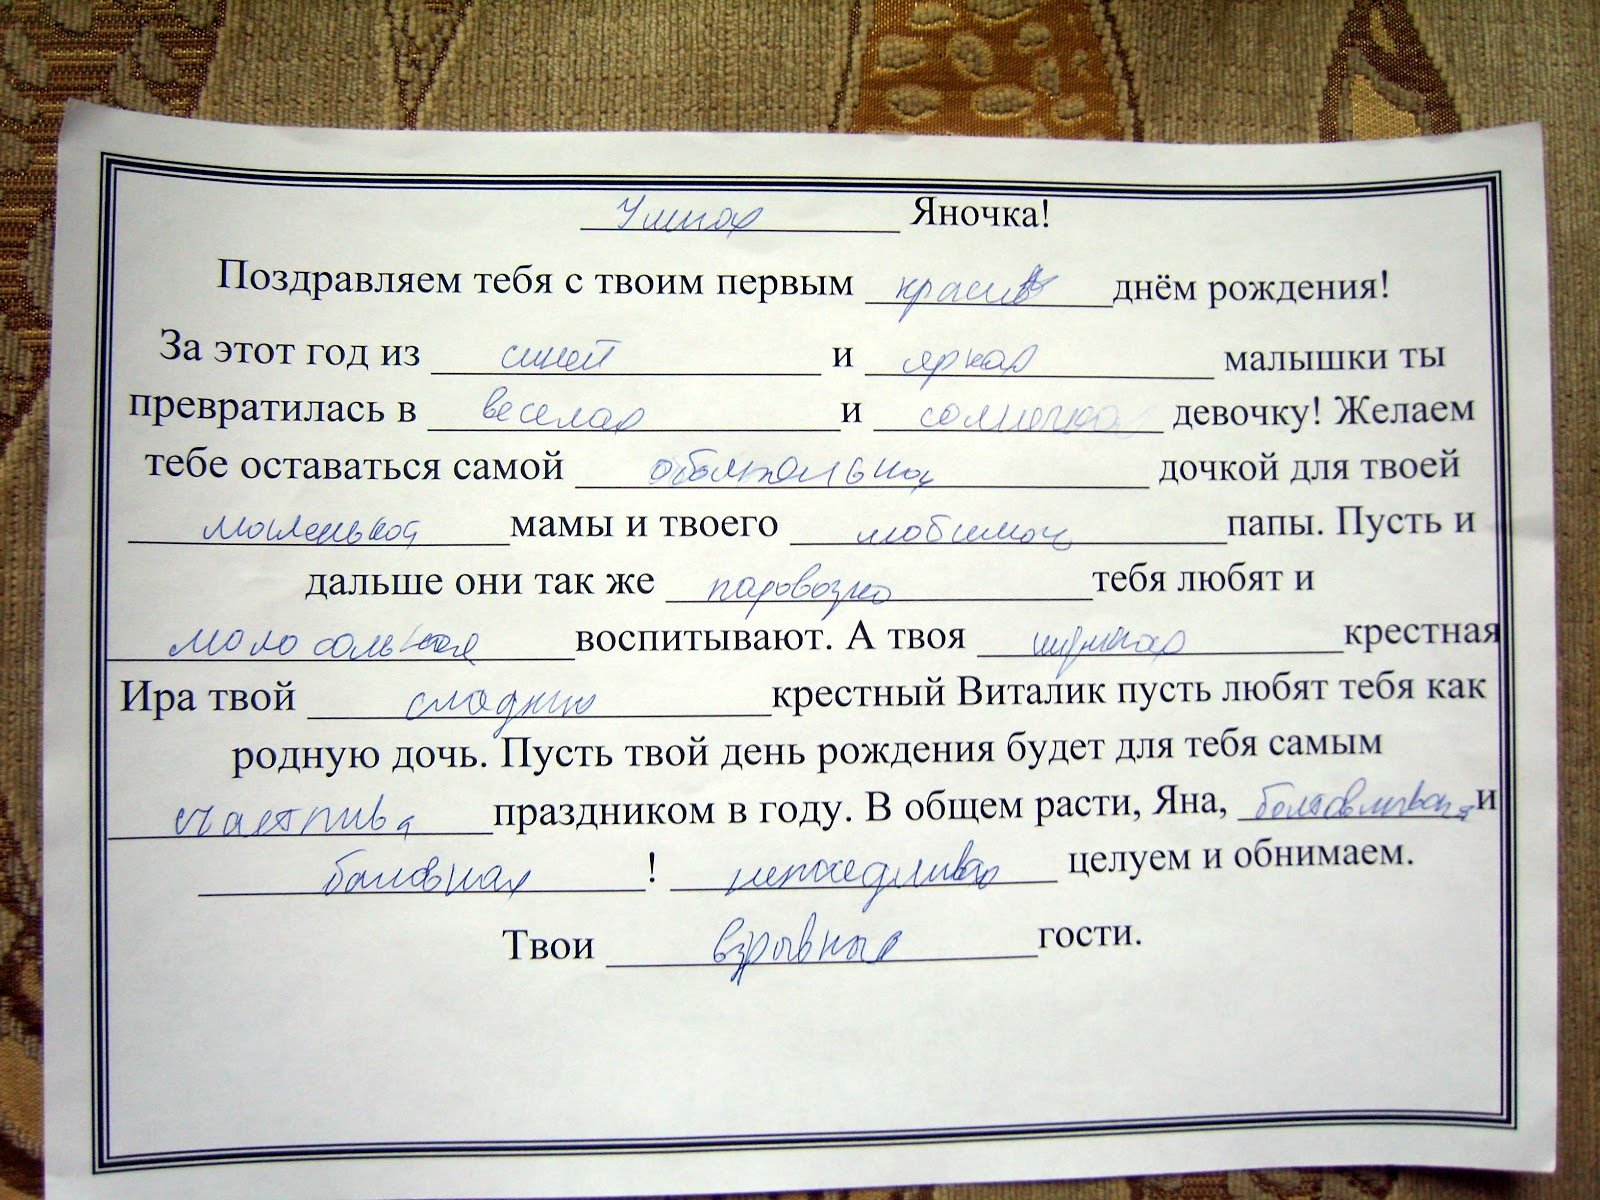 Умная Яночка!
Поздравляем тебя с твоим первым красив днём рождения!
За этот год из синей и яркая малышки ты
превратилась в веселая и солнечная девочку! Желаем
тебе оставаться самой обаятельная дочкой для твоей
маленькой мамы и твоего любимой папы. Пусть и
дальше они так же паровозно тебя любят и
малосольная воспитывают. А твоя шумная крестная
Ира твой сладкую крестный Виталик пусть любят тебя как
родную дочь. Пусть твой день рождения будет для тебя самым
счастлива праздником в году. В общем расти, Яна, болтливая и
баловная ! непоседливая целуем и обнимаем.
Твои взрывныя гости.